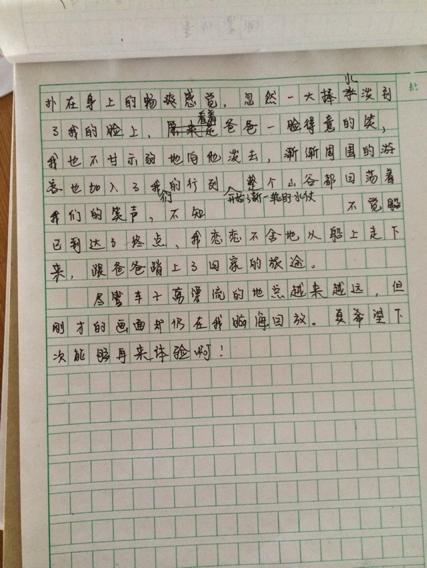 扑在身上的畅爽感觉，忽然一大捧水泼到
了我的脸上，看着爸爸一脸得意的笑，
我也不甘示弱地向他泼去，渐渐周围的游
客也加入了我们的行列，整个山谷都回荡着
我们的笑声，不知不觉船
已到达了终点，我恋恋不舍地从船上走下
来，跟爸爸踏上了回家的旅途。
尽管车子离漂流的地点越来越远，但
刚才的画面却仍在我脑海回放。真希望下
次能够再来体验啊！